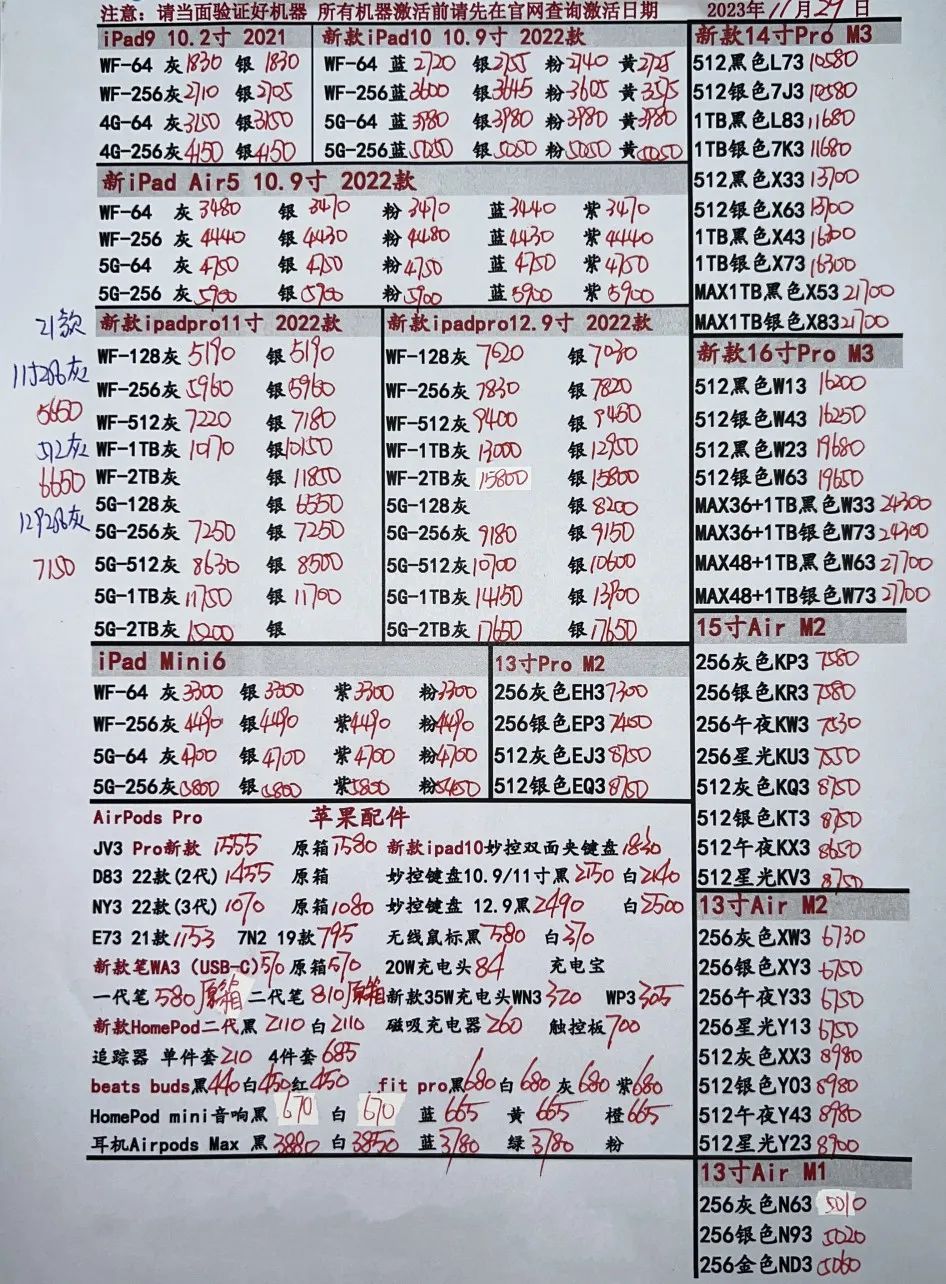 注意：请当面验证好机器 所有机器激活前请先在官网查询激活日期 2023年11月29日
iPad9 10.2寸 2021
WF-64 灰1830 银1830
WF-256灰2110 银2105
4G-64 灰3150 银3150
4G-256灰4150 银4150
新款iPad10 10.9寸 2022款
WF-64 蓝2720 银2755 粉2740 黄2725
WF-256蓝3600 银3645 粉3605 黄3595
5G-64 蓝3980 银3980 粉3980 黄3980
5G-256蓝5050 银5050 粉5050 黄5050
新iPad Air5 10.9寸 2022款
WF-64 灰3480 银3470 粉3470 蓝3440 紫3470
WF-256 灰4440 银4430 粉4480 蓝4430 紫4440
5G-64 灰4750 银4750 粉4750 蓝4750 紫4750
5G-256 灰5900 银5900 粉5900 蓝5900 紫5900
21款
11寸256灰
5650
512灰
6650
129256灰
7150
新款ipadpro11寸 2022款
WF-128灰5190 银5190
WF-256灰5960 银5960
WF-512灰7220 银7180
WF-1TB灰10170 银10150
WF-2TB灰 银11850
5G-128灰 银6550
5G-256灰7250 银7250
5G-512灰8630 银8500
5G-1TB灰11750 银11700
5G-2TB灰13200 银
新款ipadpro12.9寸 2022款
WF-128灰7020 银7030
WF-256灰7830 银7820
WF-512灰9400 银9450
WF-1TB灰13000 银12950
WF-2TB灰15800 银15800
5G-128灰 银8200
5G-256灰9180 银9150
5G-512灰10700 银10600
5G-1TB灰14150 银13900
5G-2TB灰17650 银17650
iPad Mini6
WF-64 灰3300 银3300 紫3300 粉3300
WF-256灰4490 银4490 紫4490 粉4490
5G-64 灰4700 银4700 紫4700 粉4700
5G-256灰5800 银5800 紫5800 粉5450
13寸Pro M2
256灰色EH37300
256银色EP37450
512灰色EJ38750
512银色EQ38750
AirPods Pro 苹果配件
JV3 Pro新款 1555 原箱1580 新款ipad10妙控双面夹键盘1830
D83 22款(2代)1455 原箱 妙控键盘10.9/11寸黑2150 白2140
NY3 22款(3代)1070 原箱1080 妙控键盘 12.9黑2490 白2500
E73 21款1153 7N2 19款795 无线鼠标黑580 白370
新款笔WA3 (USB-C)510 原箱570 20W充电头84 充电宝
一代笔580原箱 二代笔810原箱 新款35W充电头WN3320 WP3305
新款HomePod二代黑 2110 白2110 磁吸充电器260 触控板700
追踪器 单件套210 4件套685
beats buds黑440白450红450 fit pro黑680白680 灰680 紫680
HomePod mini音响黑 670 白 670 蓝 665 黄 665 橙665
耳机Airpods Max 黑3880 白3850 蓝3780 绿3780 粉
新款14寸Pro M3
512黑色L7310580
512银色7J310580
1TB黑色L8311680
1TB银色7K311680
512黑色X3313700
512银色X6313700
1TB黑色X4316300
1TB银色X7316300
MAX1TB黑色X5321700
MAX1TB银色X8321700
新款16寸Pro M3
512黑色W13 16200
512银色W43 16250
512黑色W23 19680
512银色W63 19650
MAX36+1TB黑色W33 24300
MAX36+1TB银色W73 24300
MAX48+1TB黑色W63 27700
MAX48+1TB银色W73 27700
15寸Air M2
256灰色KP37580
256银色KR37580
256午夜KW37530
256星光KU37550
512灰色KQ38750
512银色KT38750
512午夜KX38650
512星光KV38750
13寸Air M2
256灰色XW3 6730
256银色XY3 6750
256午夜Y33 6750
256星光Y13 6750
512灰色XX3 8980
512银色Y03 8980
512午夜Y43 8980
512星光Y23 8900
13寸Air M1
256灰色N63 5010
256银色N93 5020
256金色ND3 5060